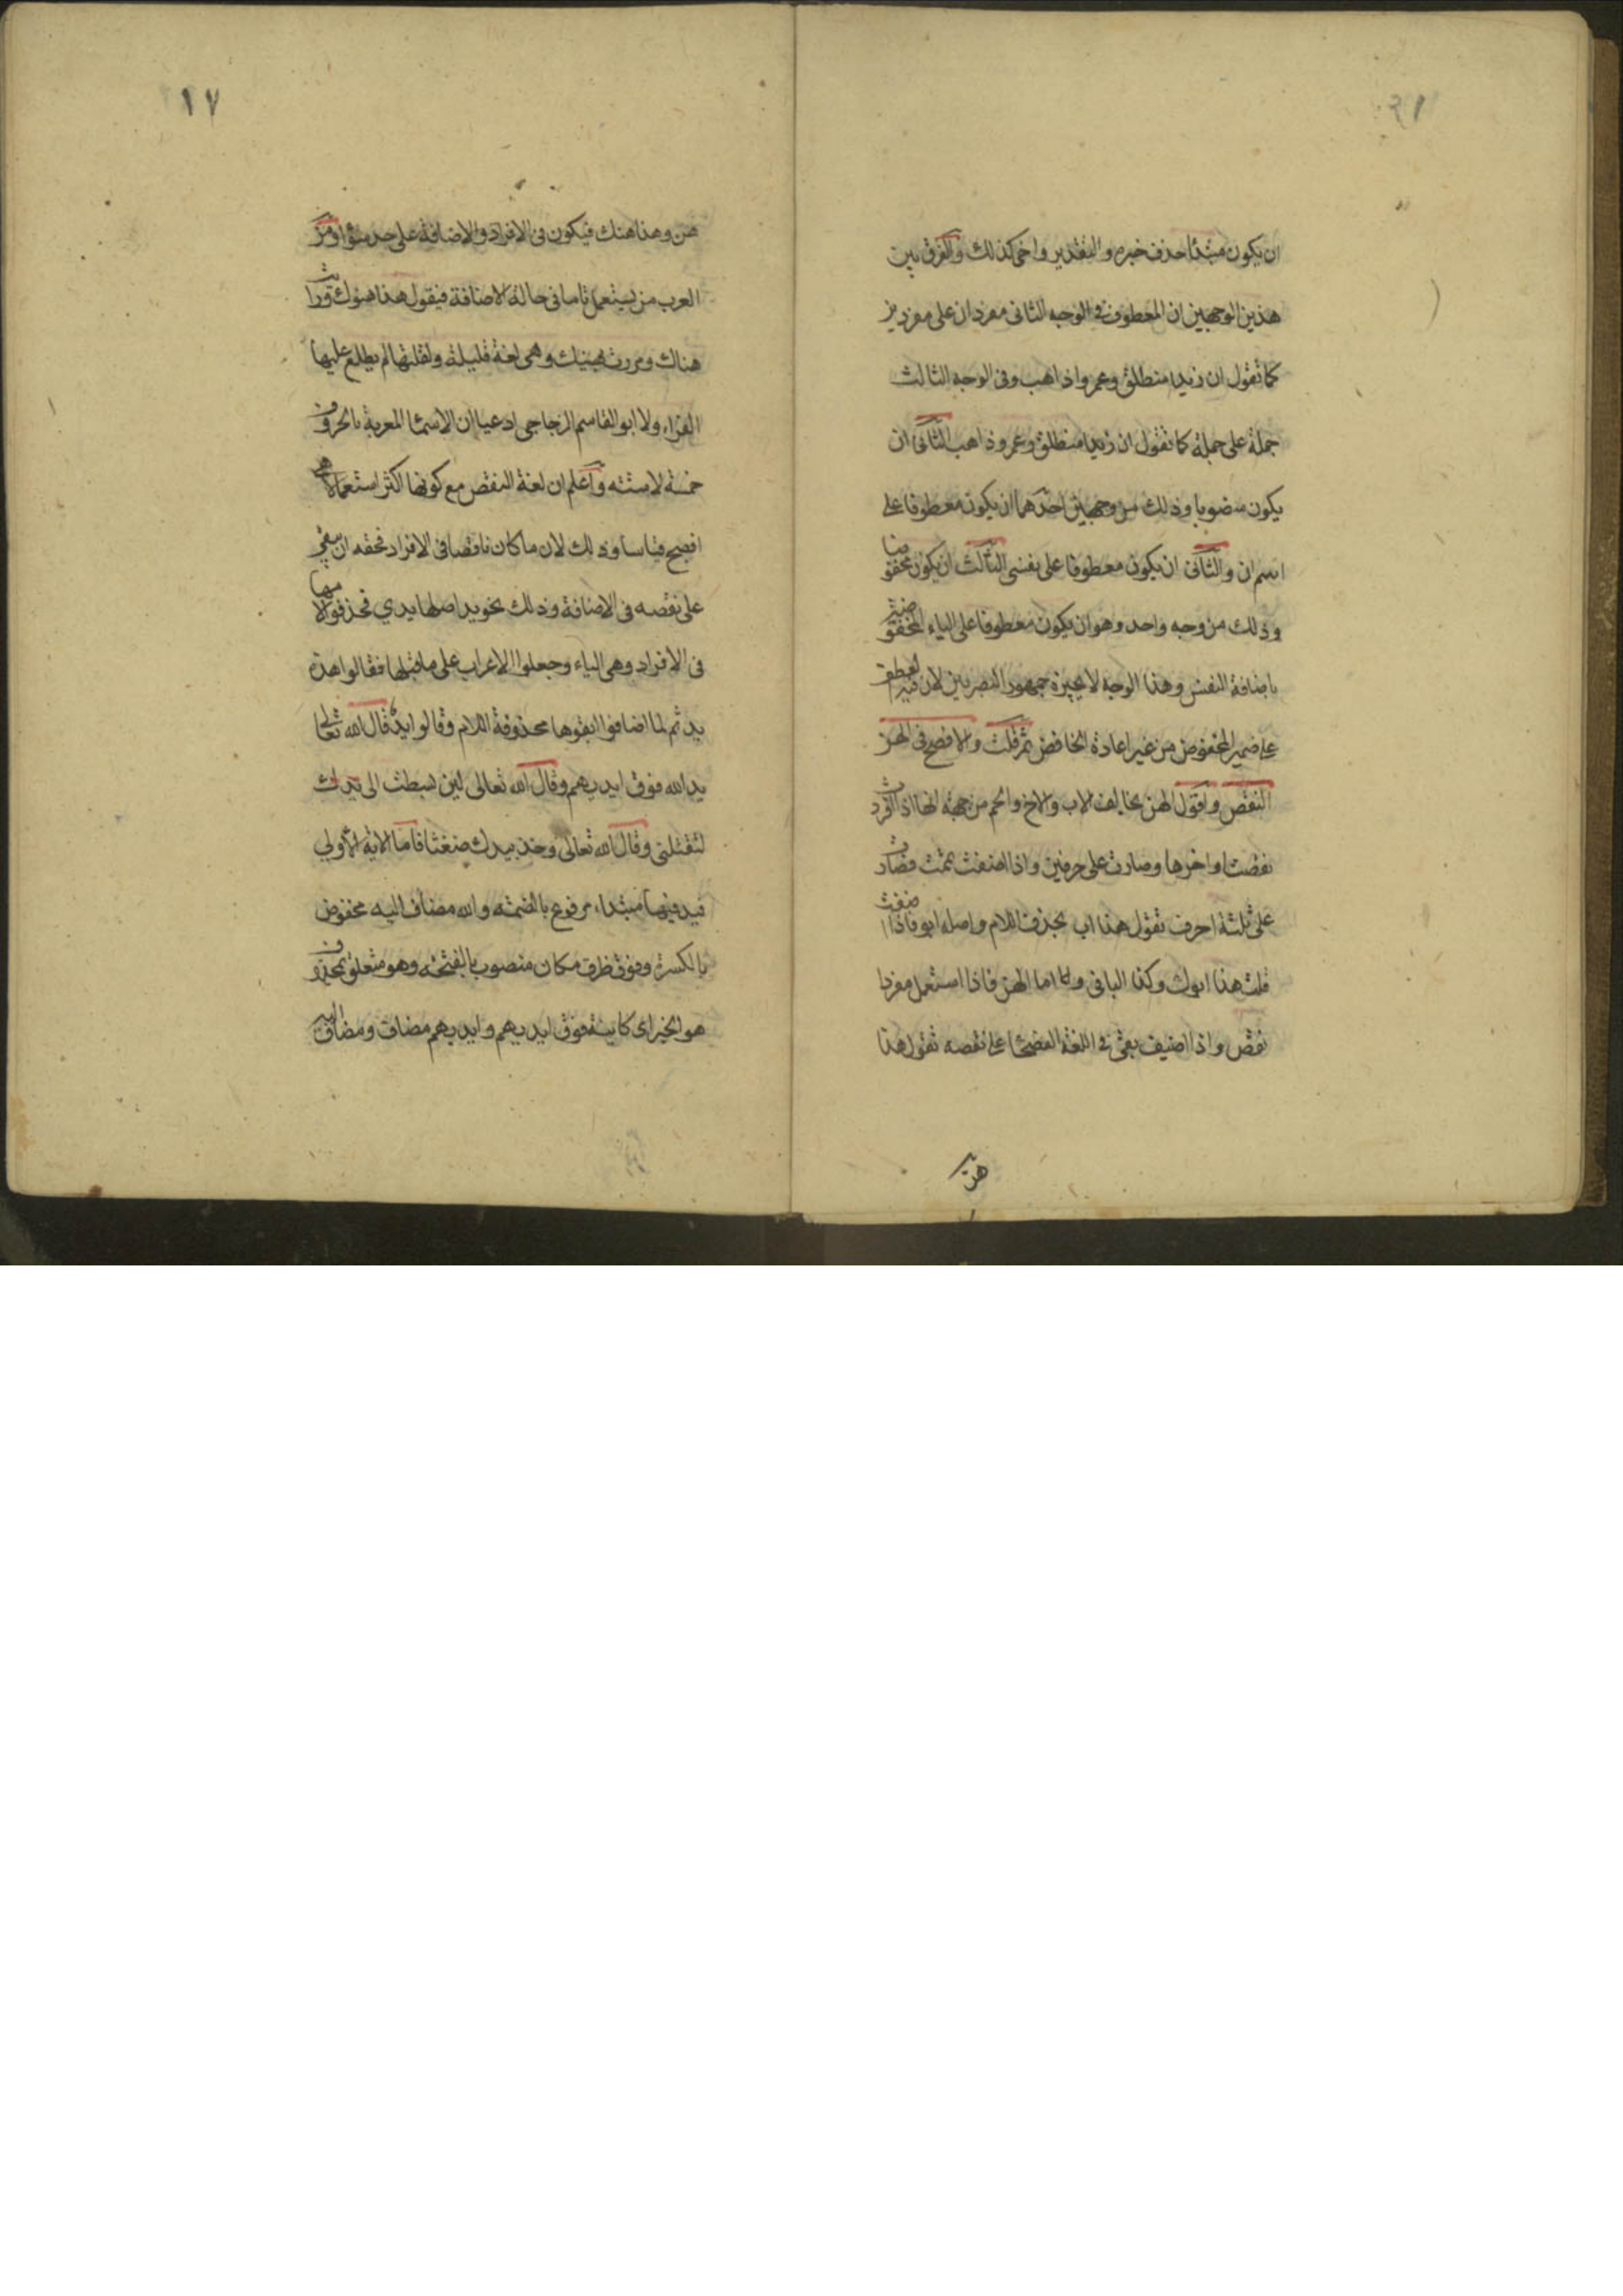 ان يكون مبتدأ حذف خبره والتقدير واخى كذلك والفرق بين
هذين الوجهين ان المعطوف فى الوجه الثانى مفردان على مفردين
كما تقول ان زيدا منطلق وعمروا ذاهب وفى الوجه الثالث
جملة على جملة كما تقول ان زيدا منطلق وعمرو ذاهب الثانى ان
يكون منصوبا وذلك من وجهين احدهما ان يكون معطوفا على
اسم ان والثانى ان يكون معطوفا على نفسى الثالث ان يكون مخفوضا
وذلك من وجه واحد وهو ان يكون معطوفا على الياء المخفوضة
باضافة النفس وهذا الوجه لا يجيزه جمهور البصريين لان فيه العطف
على ضمير المخفوض من غير اعادة الخافض ثم قلت والافصح فى الهن
النقص واقول الهن يخالف الاب والاخ والحم من جهة انها اذا افردت
نقصت اواخرها وصارت على حرفين واذا اضفت تمت فصارت
على ثلثة احرف تقول هذا اب بحذف اللام واصله ابو فاذا اضفت
قلت هذا ابوك وكذا الباقى واما الهن فاذا استعمل مفردا
نقص واذا اضيف بقى فى اللغة الفصحا على نقصه تقول هذا
هن
١٧
هن وهذا هنك فيكون فى الافراد والاضافة على حد سوا ومن
العرب من يستعمل تاما فى حالة الاضافة فيقول هذا هنوك ورايت
هناك ومررت بهنيك وهى لغة قليلة ولقلتها لم يطلع عليها
الفراء ولا ابو القاسم الزجاجى ادعيا ان الاسما المعربة بالحروف
خمسة لا ستة واعلم ان لغة النقص مع كونها اكثر استعمالا هى
افصح قياسا وذلك لان ما كان ناقصا فى الافراد فحقه ان يبقى
على نقصه فى الاضافة وذلك نحو يد اصلها يدي فحذفوا لامها
فى الافراد وهى الياء وجعلوا الاعراب على ما قبلها فقالوا هذه
يد ثم لما اضافوا ابقوها محذوفة اللام وقالوا يده قال الله تعالى
يد الله فوق ايديهم وقال الله تعالى لين بسطت الى يدك
لتقتلنى وقال الله تعالى وخذ بيدك ضغثا فاما الاية الاولى
فيد فيها مبتداء مرفوع بالضمة والله مضاف اليه مخفوض
بالكسرة وفوق ظرف مكان منصوب بالفتحة وهو متعلق بمحذوف
هو الخبر اى كاينة فوق ايديهم وايديهم مضاف ومضاف اليه